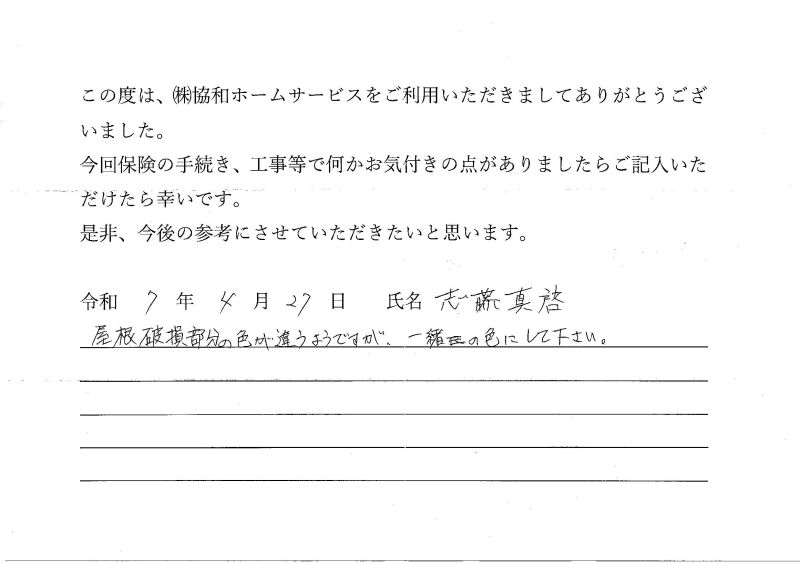 この度は、㈱協和ホームサービスをご利用いただきましてありがとうござ
いました。
今回保険の手続き、工事等で何かお気付きの点がありましたらご記入いた
だけたら幸いです。
是非、今後の参考にさせていただきたいと思います。
令和 7 年 4 月 27 日 氏名 志藤真啓
屋根破損部分の色が違うようですが、一緒の色にして下さい。